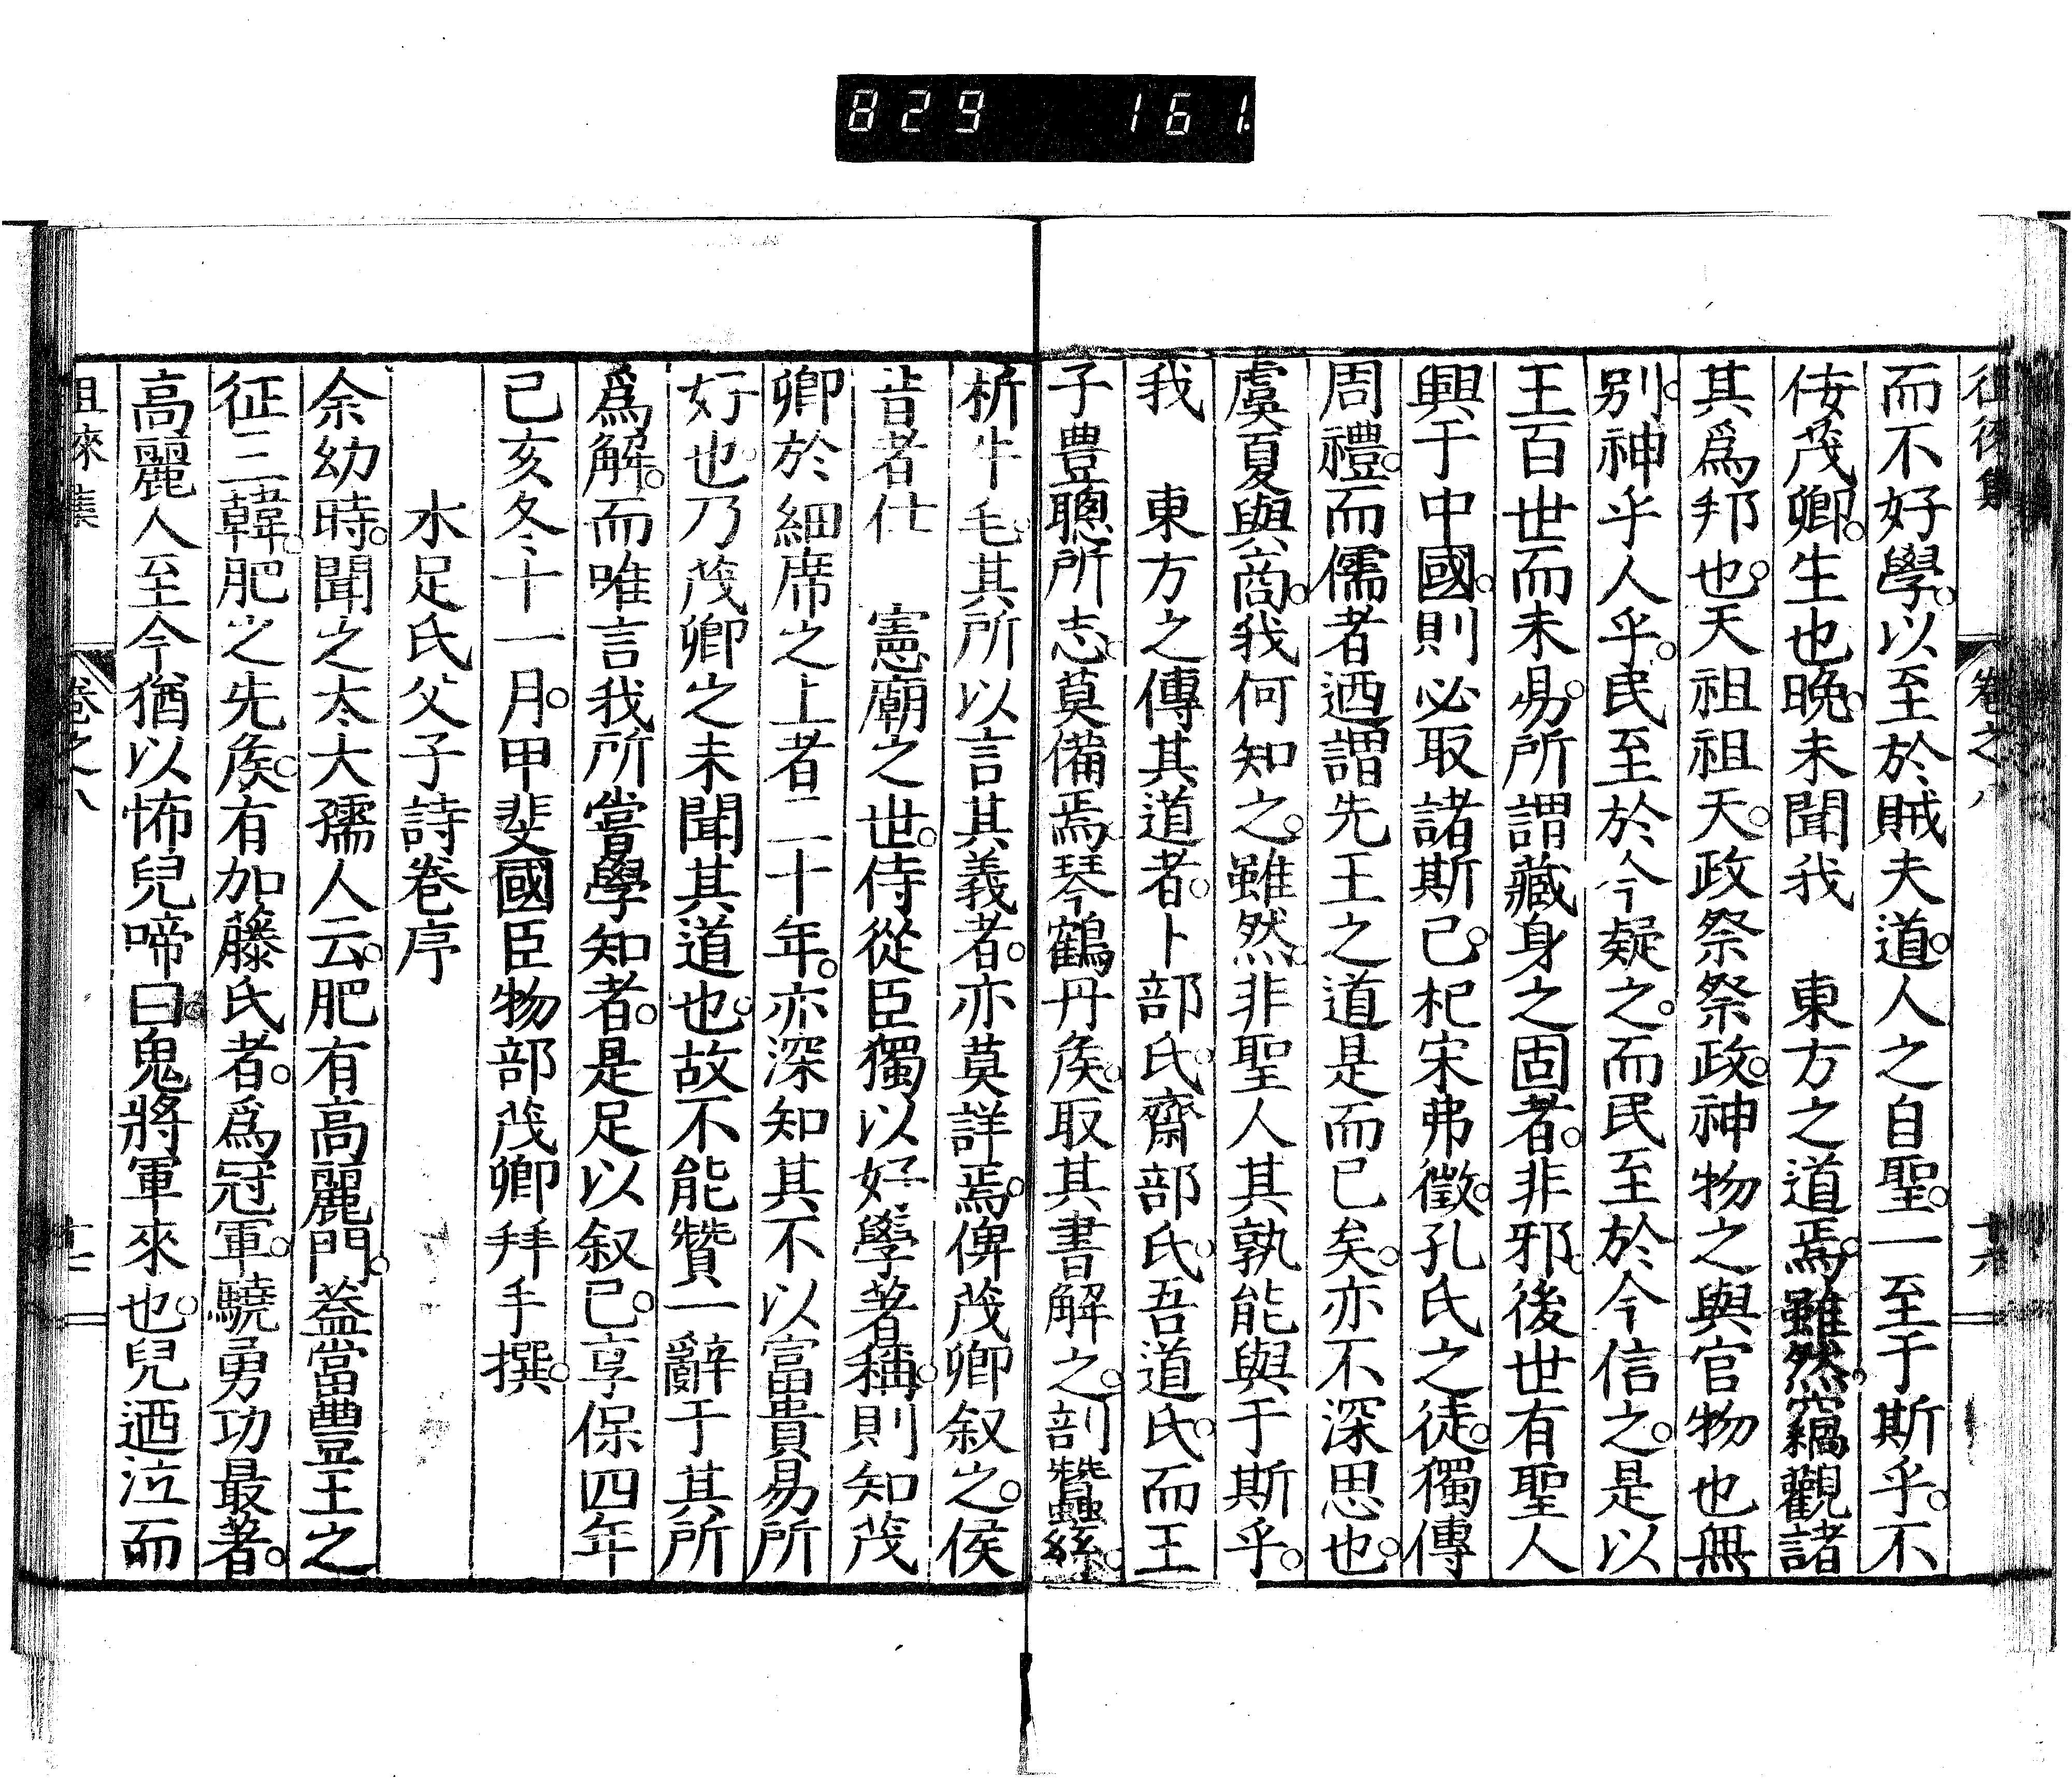 829 161.
徂徠集 卷之八
而不好學。以至於賊夫道。人之自聖。一至于斯乎。不
佞茂卿。生也晚。未聞我 東方之道焉。雖然。竊觀諸
其爲邦也。天祖祖天。政祭祭政。神物之與官物也無
別。神乎人乎。民至於今疑之。而民至於今信之。是以
王百世而未易。所謂藏身之固者。非邪。後世有聖人
興于中國。則必取諸斯已。杞宋弗徵。孔氏之徒。獨傳
周禮。而儒者迺謂先王之道是而已矣。亦不深思也。
虞夏與商。我何知之。雖然。非聖人其孰能與于斯乎。
我 東方之傳其道者。卜部氏。齋部氏。吾道氏。而王
子豊聰所志。莫備焉。琴鶴丹侯。取其書解之。剖蠶絲。
析牛毛。其所以言其義者。亦莫詳焉。俾茂卿叙之。侯
昔者仕 憲廟之世。侍從臣獨以好學著稱。則知茂
卿於細席之上者二十年。亦深知其不以富貴易所
好也。乃茂卿之未聞其道也。故不能贊一辭于其所
爲解。而唯言我所嘗學知者。是足以叙已。享保四年
己亥冬十一月。甲斐國臣物部茂卿拜手撰。
水足氏父子詩卷序
余幼時。聞之太大孺人云。肥有高麗門。蓋當豊王之
征三韓。肥之先侯。有加藤氏者。爲冠軍。驍勇功最著。
高麗人至今猶以怖兒啼曰。鬼將軍來也。兒迺泣而
徂徠集 卷之八